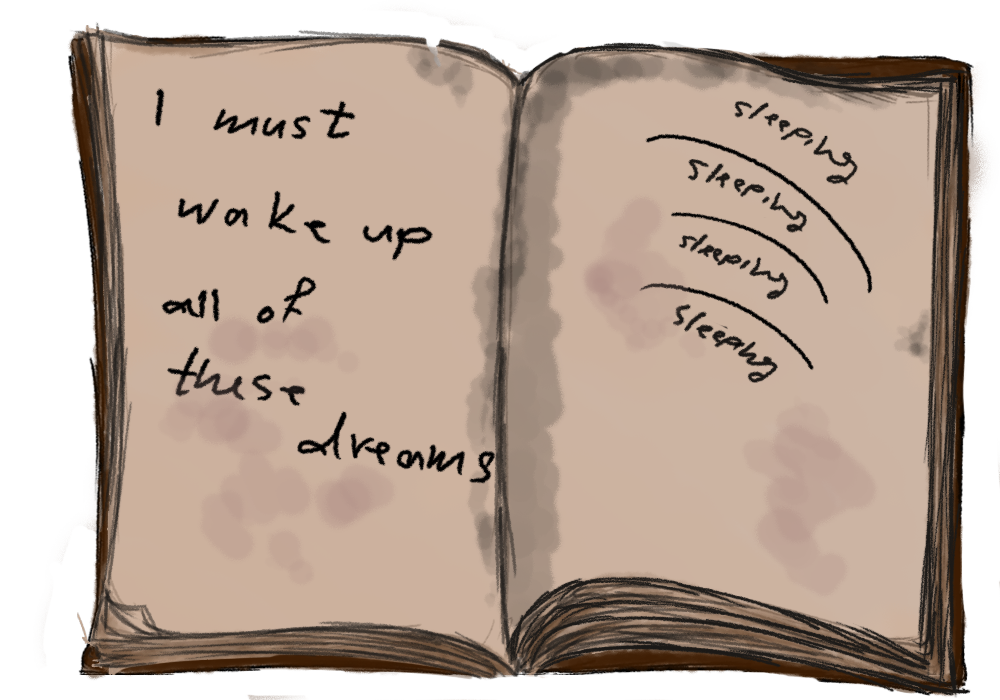 I must
wake up
all of
these
dreams
sleeping
sleeping
sleeping
sleeping